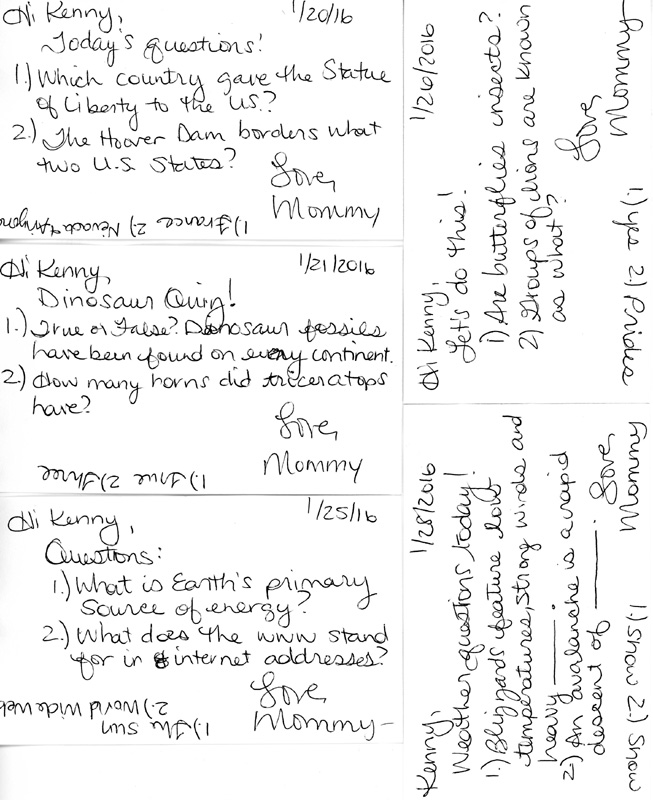 Hi Kenny, 1/20/16
Today's questions!
1.) Which country gave the Statue
of Liberty to the U.S.?
2.) The Hoover Dam borders what
two U.S. States?
Love,
Mommy
1) France 2) Nevada & Arizona
Hi Kenny, 1/21/2016
Dinosaur Quiz!
1.) True or False? Dinosaur fossils
have been found on every continent.
2.) How many horns did triceratops
have?
Love,
Mommy
1.) True 2.) Three
Hi Kenny, 1/25/16
Questions:
1.) What is Earth's primary
source of energy?
2.) What does the www stand
for in internet addresses?
Love,
Mommy
1.) The Sun
2.) World Wide Web
Hi Kenny, 1/26/2016
Let's do this!
1) Are butterflies insects?
2) Groups of lions are known
as what?
Love,
Mommy
1) yes 2) Prides
Kenny, 1/28/2016
Weather questions today!
1.) Blizzards feature low
temperatures, strong winds and
heavy ______.
2.) An avalanche is a rapid
descent of ______.
Love,
Mommy
1.) Snow 2.) Snow